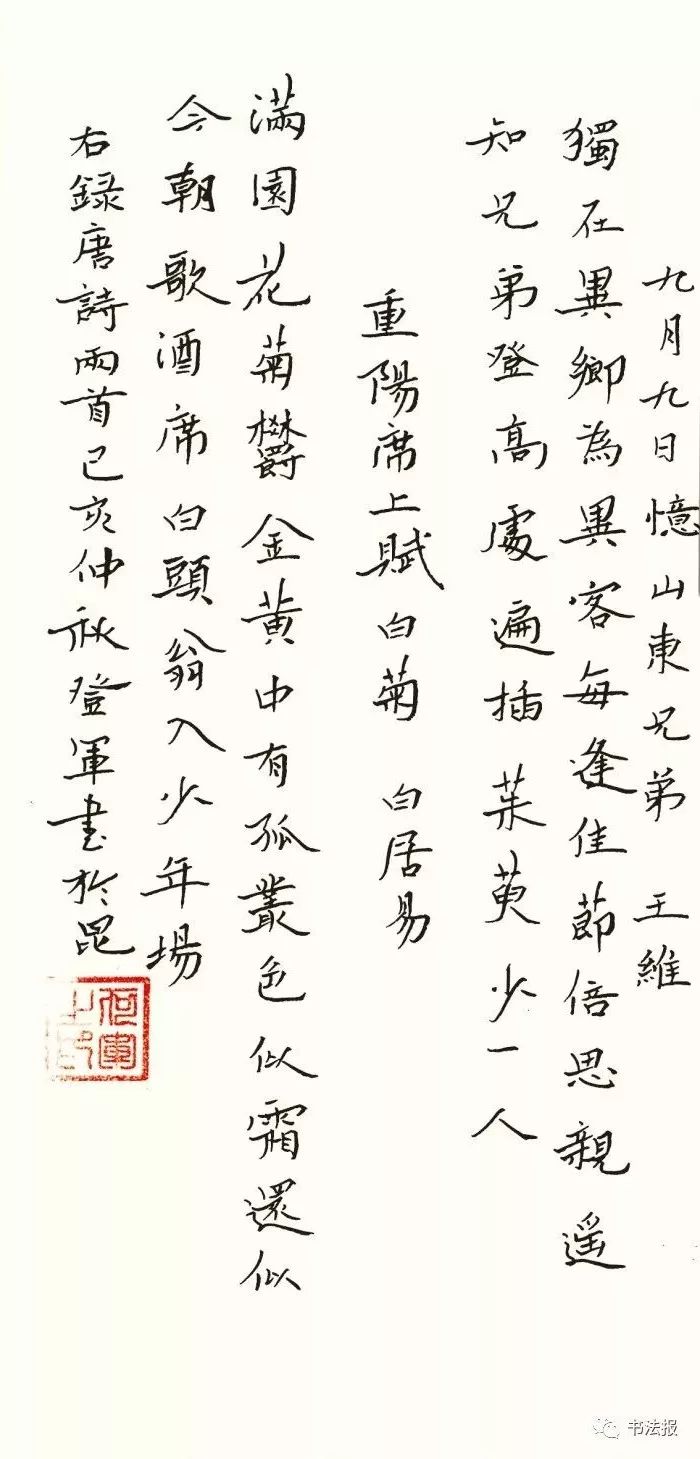 九月九日憶山東兄弟 王維
獨在異鄉為異客每逢佳節倍思親遥
知兄弟登高處遍插茱萸少一人
重陽席上賦白菊 白居易
滿園花菊欝金黄中有孤叢色似霜還似
今朝歌酒席白頭翁入少年場
右録唐詩兩首己亥仲秋登軍書於昆
书法报